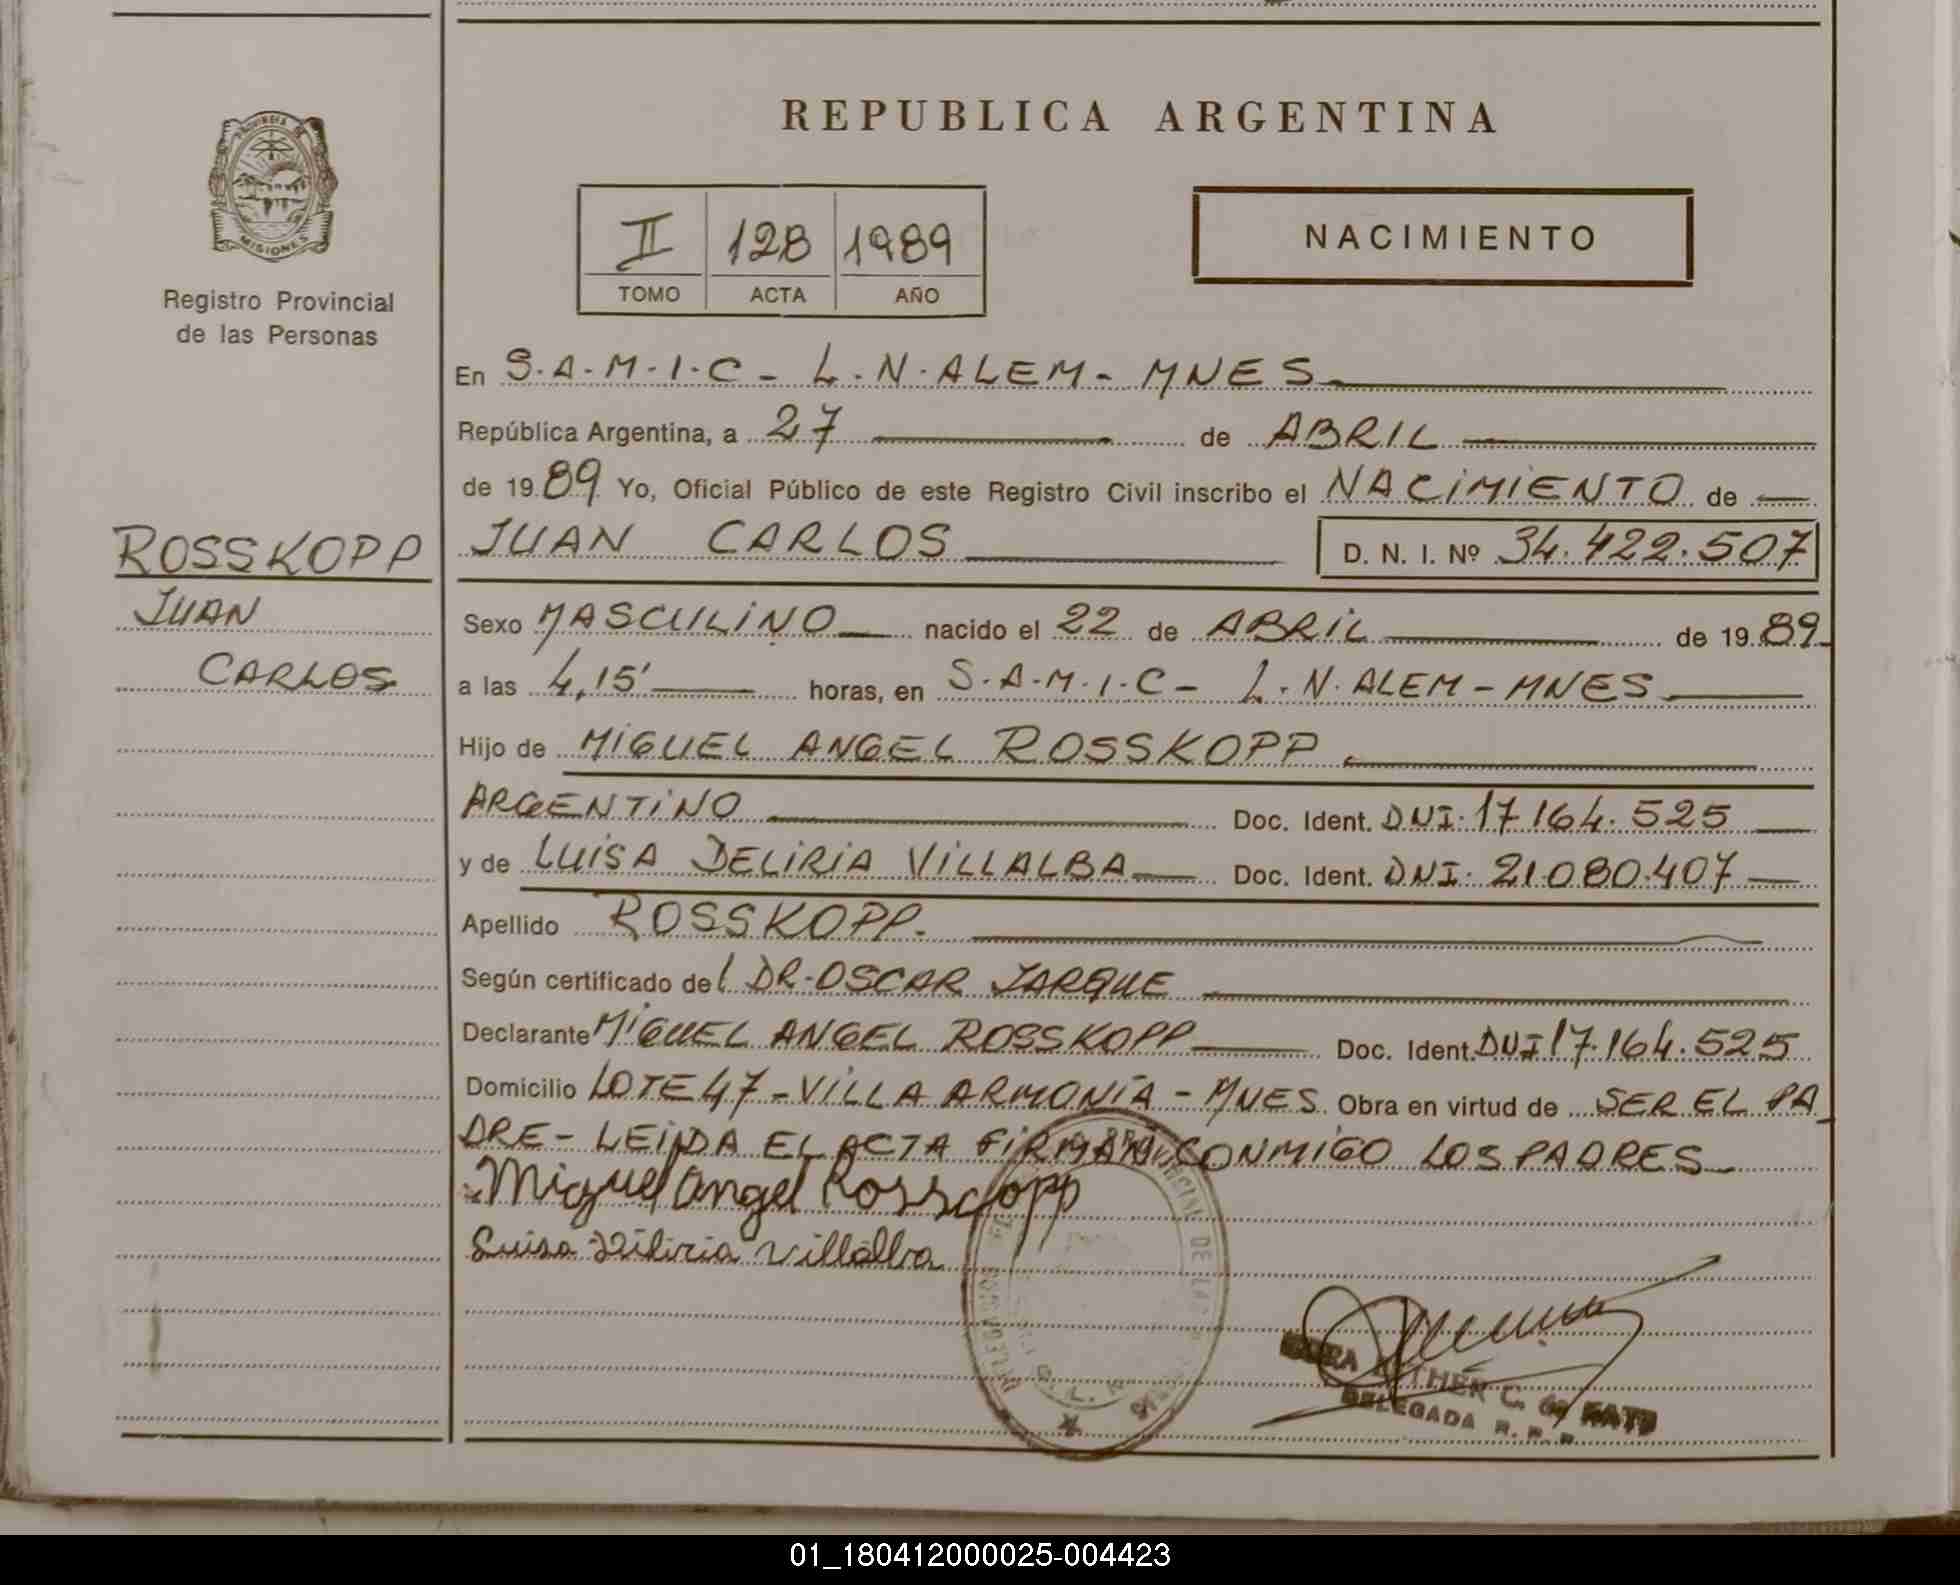 REPUBLICA ARGENTINA
PROVINCIA DE
MISIONES
Registro Provincial
de las Personas
II 128 1989
TOMO ACTA AÑO
NACIMIENTO
En S.A.M.I.C - L.N.ALEM - MNES
República Argentina, a 27 de ABRIL
de 1989 Yo, Oficial Público de este Registro Civil inscribo el NACIMIENTO de
JUAN CARLOS D. N. I. Nº 34.422.507
ROSSKOPP
JUAN
CARLOS
Sexo MASCULINO nacido el 22 de ABRIL de 1989
a las 4,15' horas, en S.A.M.I.C - L.N.ALEM - MNES
Hijo de MIGUEL ANGEL ROSSKOPP
ARGENTINO Doc. Ident. DNI. 17.164.525
y de LUISA DELIRIA VILLALBA Doc. Ident. DNI. 21.080.407
Apellido ROSSKOPP.
Según certificado del DR. OSCAR JARQUE
Declarante MIGUEL ANGEL ROSSKOPP Doc. Ident. DNI 17.164.525
Domicilio LOTE 47 - VILLA ARMONÍA - MNES. Obra en virtud de SER EL PA
DRE - LEIDA EL ACTA FIRMAN CONMIGO LOS PADRES
Miguel Angel Rosscopp
Luisa Diliria Villalba
ESTHER C. de
DELEGADA R. P. P.
01_180412000025-004423